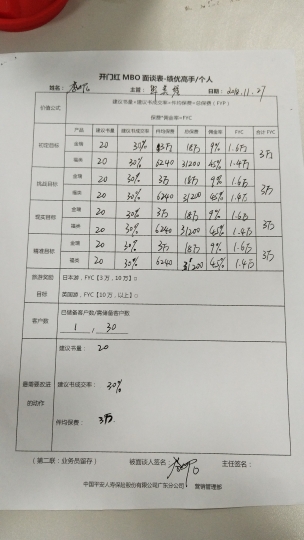 开门红 MBO 面谈表-绩优高手/个人
姓名： 主管： 日期：2018.11.27
价值公式 建议书量*建议书成交率*件均保费=总保费（FYP）
保费*佣金率=FYC
产品 建议书量 建议书成交率 件均保费 总保费 佣金率 FYC 合计 FYC
初定目标 金瑞 20 30% 3万 18万 9% 1.6万 3万
福类 20 30% 6240 31200 45% 1.4万
挑战目标 金瑞 20 30% 3万 18万 9% 1.6万 3万
福类 20 30% 6240 31200 45% 1.4万
现实目标 金瑞 20 30% 3万 18万 9% 1.6万 3万
福类 20 30% 6240 31200 45% 1.4万
精准目标 金瑞 20 30% 3万 18万 9% 1.6万 3万
福类 20 30% 6240 31200 45% 1.4万
旅游奖励目标 日本游，FYC【3 万，10 万】□
英国游，FYC【10 万，以上】□
客户数 已储备客户数/需储备客户数
1 / 30
最需要改进的动作 建议书量： 20
建议书成交率： 30%
件均保费： 3万
（第二联：业务员留存） 被面谈人签名： 主任签名：
中国平安人寿保险股份有限公司广东分公司 营销管理部